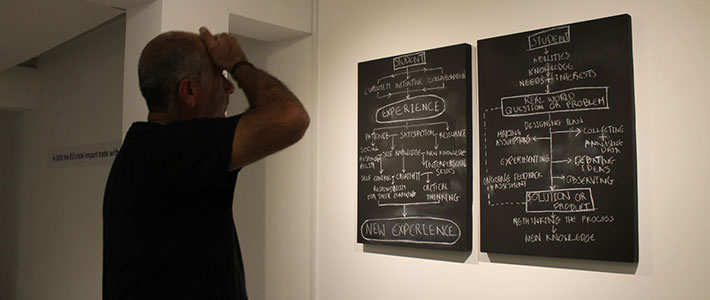 In 2015 the EU's total import trade with
STUDENT
CURIOSITY INITIATIVE COLLABORATION
EXPERIENCE
PATIENCE SATISFACTION RESILIANCE
SOCIAL RESPONSIBILITY SELF KNOWLEDGE NEW KNOWLEDGE
INTERPERSONAL SKILLS
SELF CONTROL CREATIVITY
RESPONSIBILITY FOR THEIR LEARNING
CRITICAL THINKING
NEW EXPERIENCE
STUDENT
ABILITIES
KNOWLEDGE
NEEDS INTERESTS
REAL WORLD
QUESTION OR PROBLEM
DESIGNING PLAN
MAKING ASSUMPTIONS
COLLECTING + ANALYSING DATA
EXPERIMENTING
DEBATING IDEAS
ONGOING FEEDBACK ASSESSMENT
OBSERVING
SOLUTION OR
PRODUCT
RETHINKING THE PROCESS
NEW KNOWLEDGE